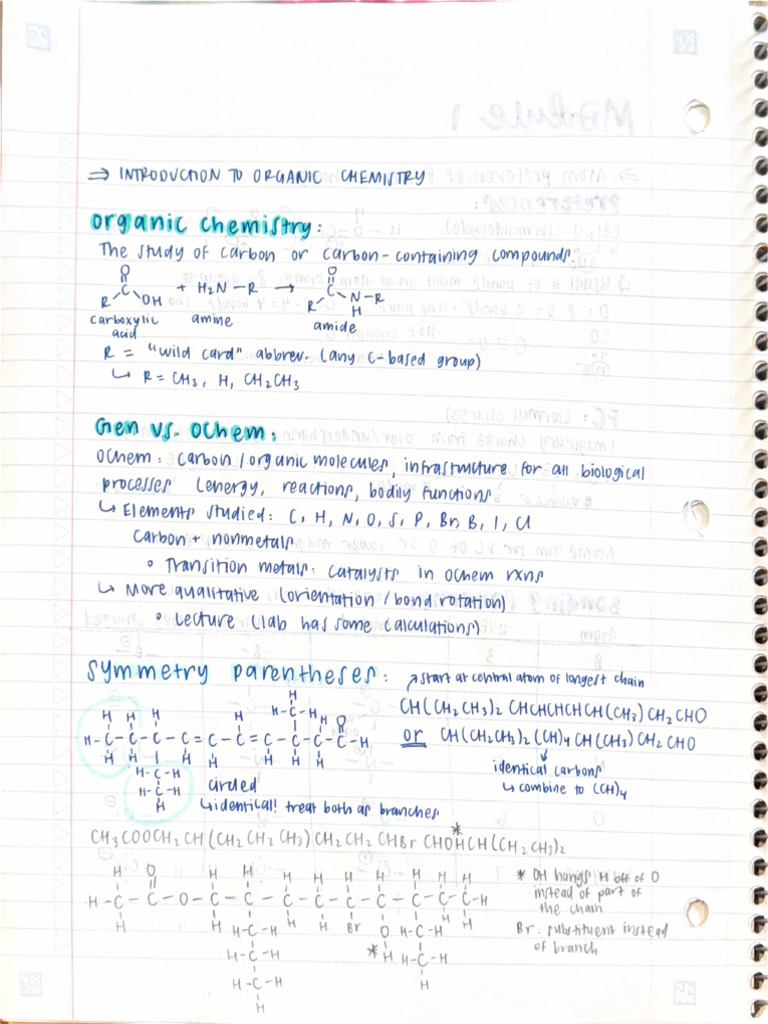 ⇒ INTRODUCTION TO ORGANIC CHEMISTRY
Organic Chemistry:
The study of carbon or carbon-containing compounds.
O O
R C OH + H₂N - R → R C N - R
H
carboxylic acid amine amide
R = "wild card" abbrev. (any C-based group)
↳ R = CH₃, H, CH₂CH₃
Gen vs. Ochem:
Ochem: Carbon/organic molecules, infrastructure for all biological
processes (energy, reactions, bodily functions
↳ Elements studied: C, H, N, O, S, P, Br, B, I, Cl
Carbon + nonmetals
° Transition metals: Catalysts in Ochem rxns
↳ More qualitative (orientation/bond rotation)
° Lecture (lab has some calculations)
Symmetry parentheses: ↗ start at central atom of longest chain
CH(CH₂CH₃)₂ CHCHCHCHCH(CH₃)CH₂CHO
or CH(CH₂CH₃)₂(CH)₄CH(CH₃)CH₂CHO
identical carbons
↳ combine to (CH)₄
H-C-C-C-C=C-C=C-C-C-C-C-H
circled
↳ identical! treat both as branches
CH₃COOCH₂CH(CH₂CH₂CH₃)CH₂CH₂CHBrCHOH*CH(CH₂CH₃)₂
H-C-C-O-C-C-C-C-C-C-C-C-C-H
Br
O
* H
* OH hangs H off of O
instead of part of
the chain
Br. substituent instead
of branch